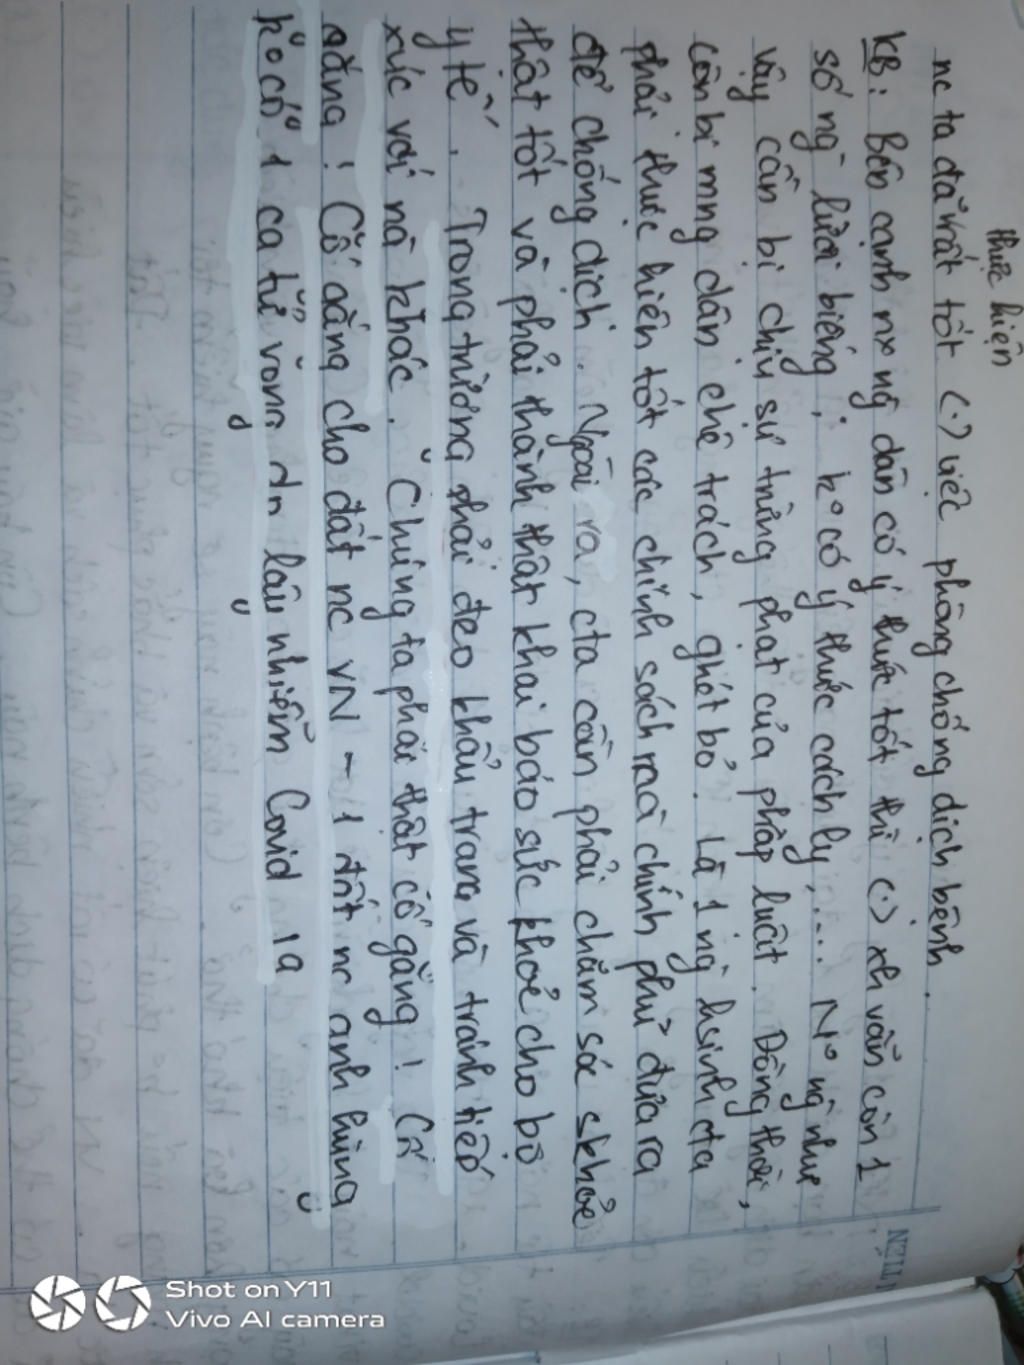 thực hiện
nc ta đã rất tốt (.) việc phòng chống dịch bệnh.
KB: Bên cạnh nx ng dân có ý thức tốt thì (.) xh vẫn còn 1
số ng lười biếng, k° có ý thức cách ly,... N° ng như
vậy cần bị chịu sự trừng phạt của pháp luật. Đồng thời,
còn bị mng dân chê trách, ghét bỏ. Là 1 ng hsinh cta
phải thực hiện tốt các chính sách mà chính phủ đưa ra
để chống dịch. Ngoài ra, cta cần phải chăm sóc skhỏe
thật tốt và phải thành thật khai báo sức khoẻ cho bộ
y tế. Trong trường phải đeo khẩu trang và tránh tiếp
xúc với nà khác. Chúng ta phải thật cố gắng! Cố
gắng! Cố gắng cho đất nc VN - 1 đất nc anh hùng
k° có 1 ca tử vong dn lây nhiễm Covid 19
NZIII
Shot on Y11
Vivo AI camera